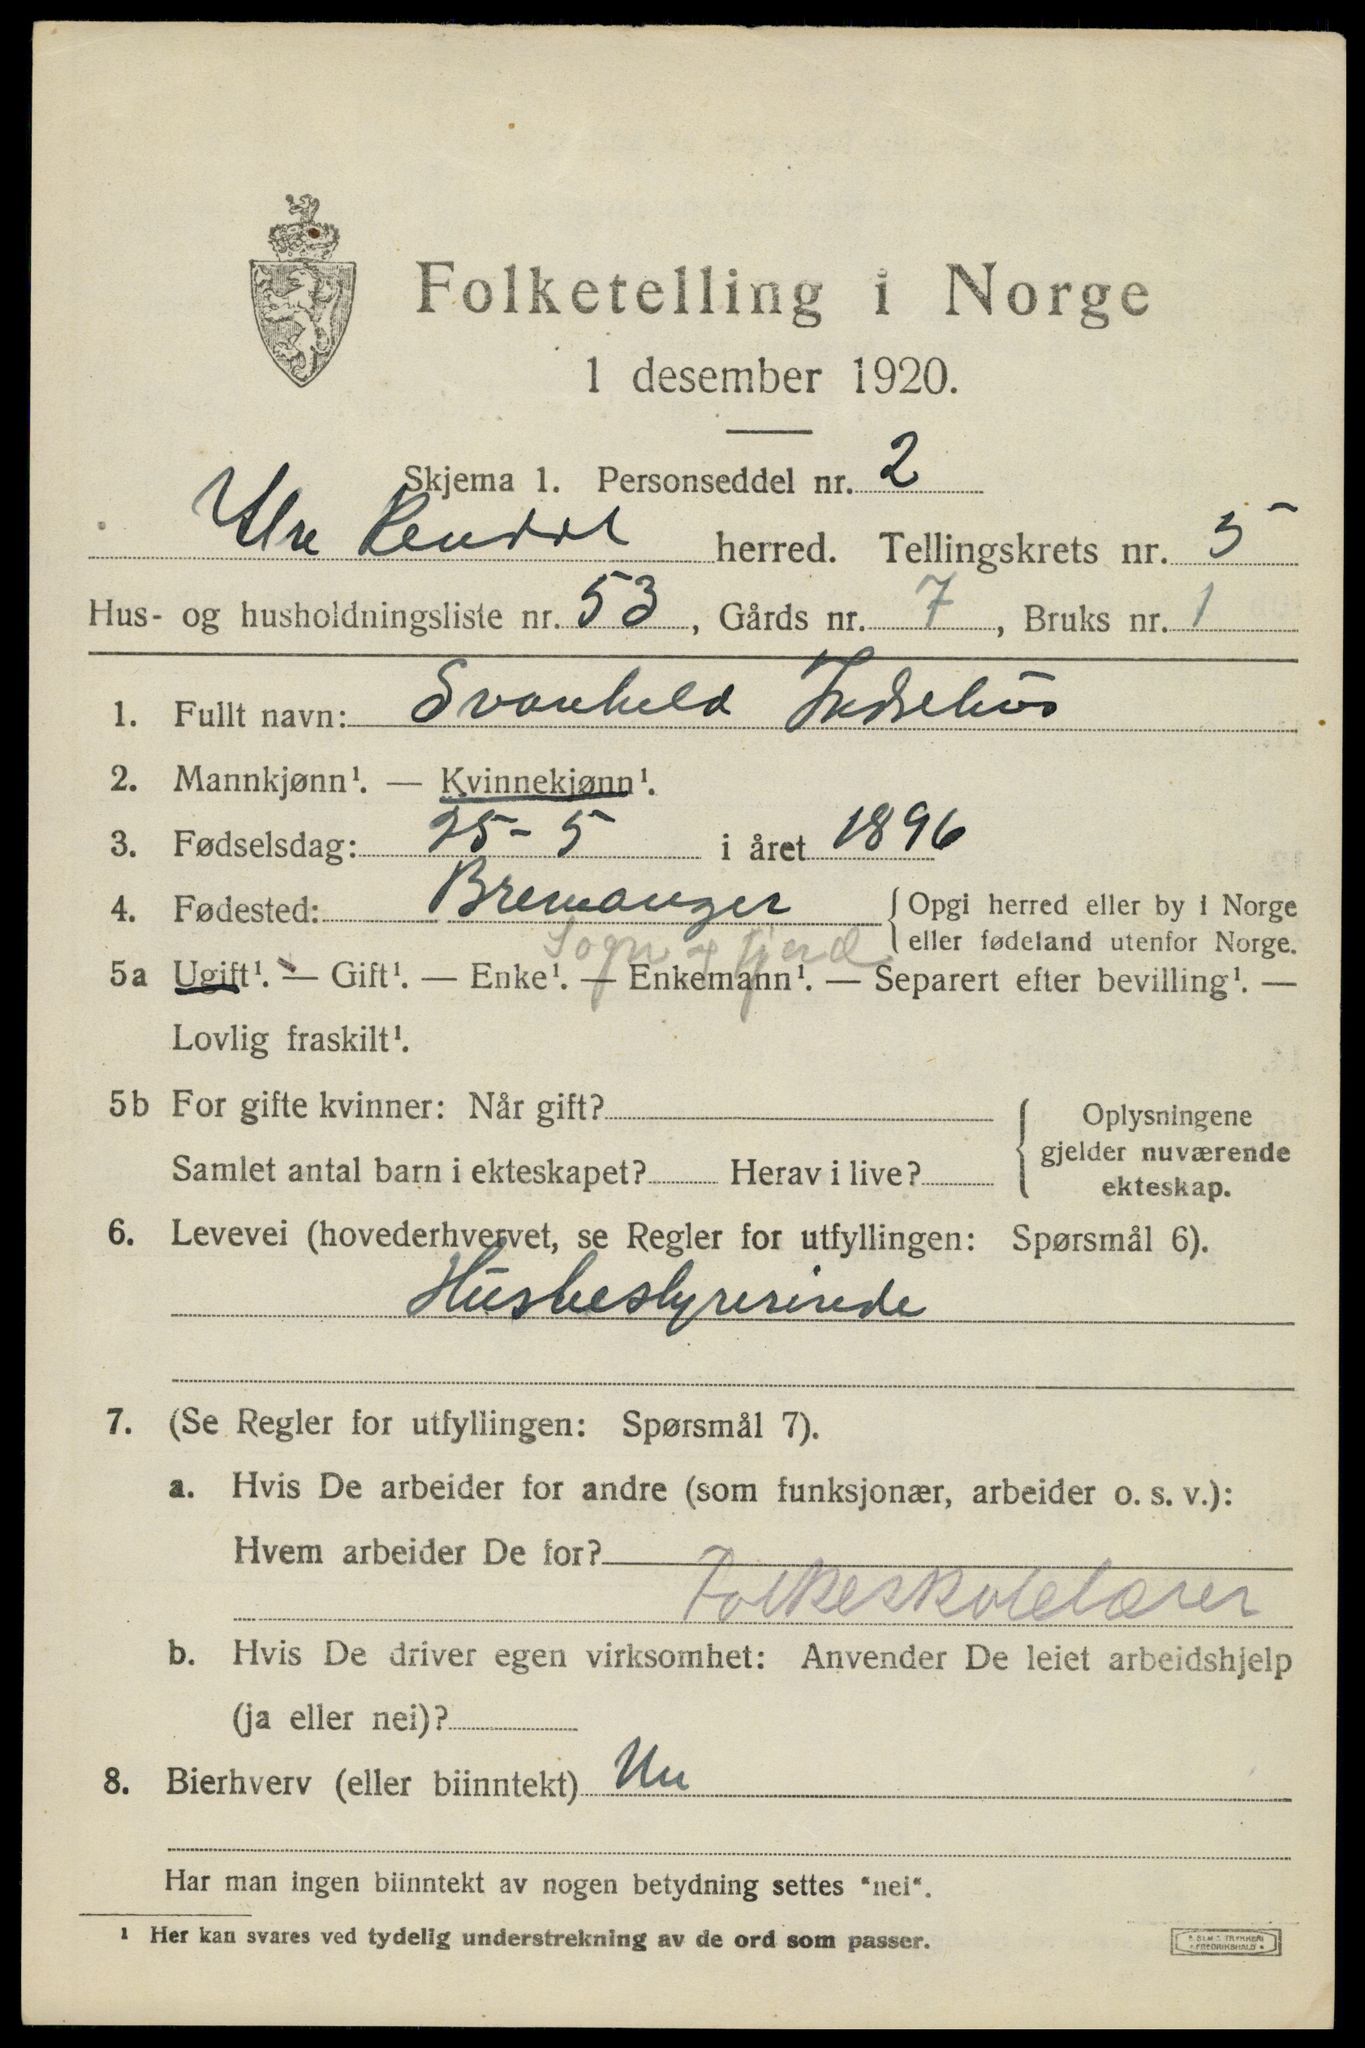 Folketelling i Norge
1 desember 1920.
Skjema 1. Personseddel nr. 2
Ytre Rendal herred. Tellingskrets nr. 5
Hus- og husholdningsliste nr. 53, Gårds nr. 7, Bruks nr. 1
1. Fullt navn: Svanhild Indrehus
2. Mannkjønn¹. — Kvinnekjønn¹.
3. Fødselsdag: 25-5 i året 1896
4. Fødested: Bremanger { Opgi herred eller by i Norge
Sogn og fjord eller fødeland utenfor Norge.
5a Ugift¹. — Gift¹. — Enke¹. — Enkemann¹. — Separert efter bevilling¹. —
Lovlig fraskilt¹.
5b For gifte kvinner: Når gift? { Oplysningene
gjelder nuværende
Samlet antal barn i ekteskapet? Herav i live? ekteskap.
6. Levevei (hovederhvervet, se Regler for utfyllingen: Spørsmål 6).
Husbestyrerinde
7. (Se Regler for utfyllingen: Spørsmål 7).
a. Hvis De arbeider for andre (som funksjonær, arbeider o. s. v.):
Hvem arbeider De for?
Folkeskolelærer
b. Hvis De driver egen virksomhet: Anvender De leiet arbeidshjelp
(ja eller nei)?
8. Bierhverv (eller biinntekt) Nei
Har man ingen biinntekt av nogen betydning settes "nei".
¹ Her kan svares ved tydelig understrekning av de ord som passer.